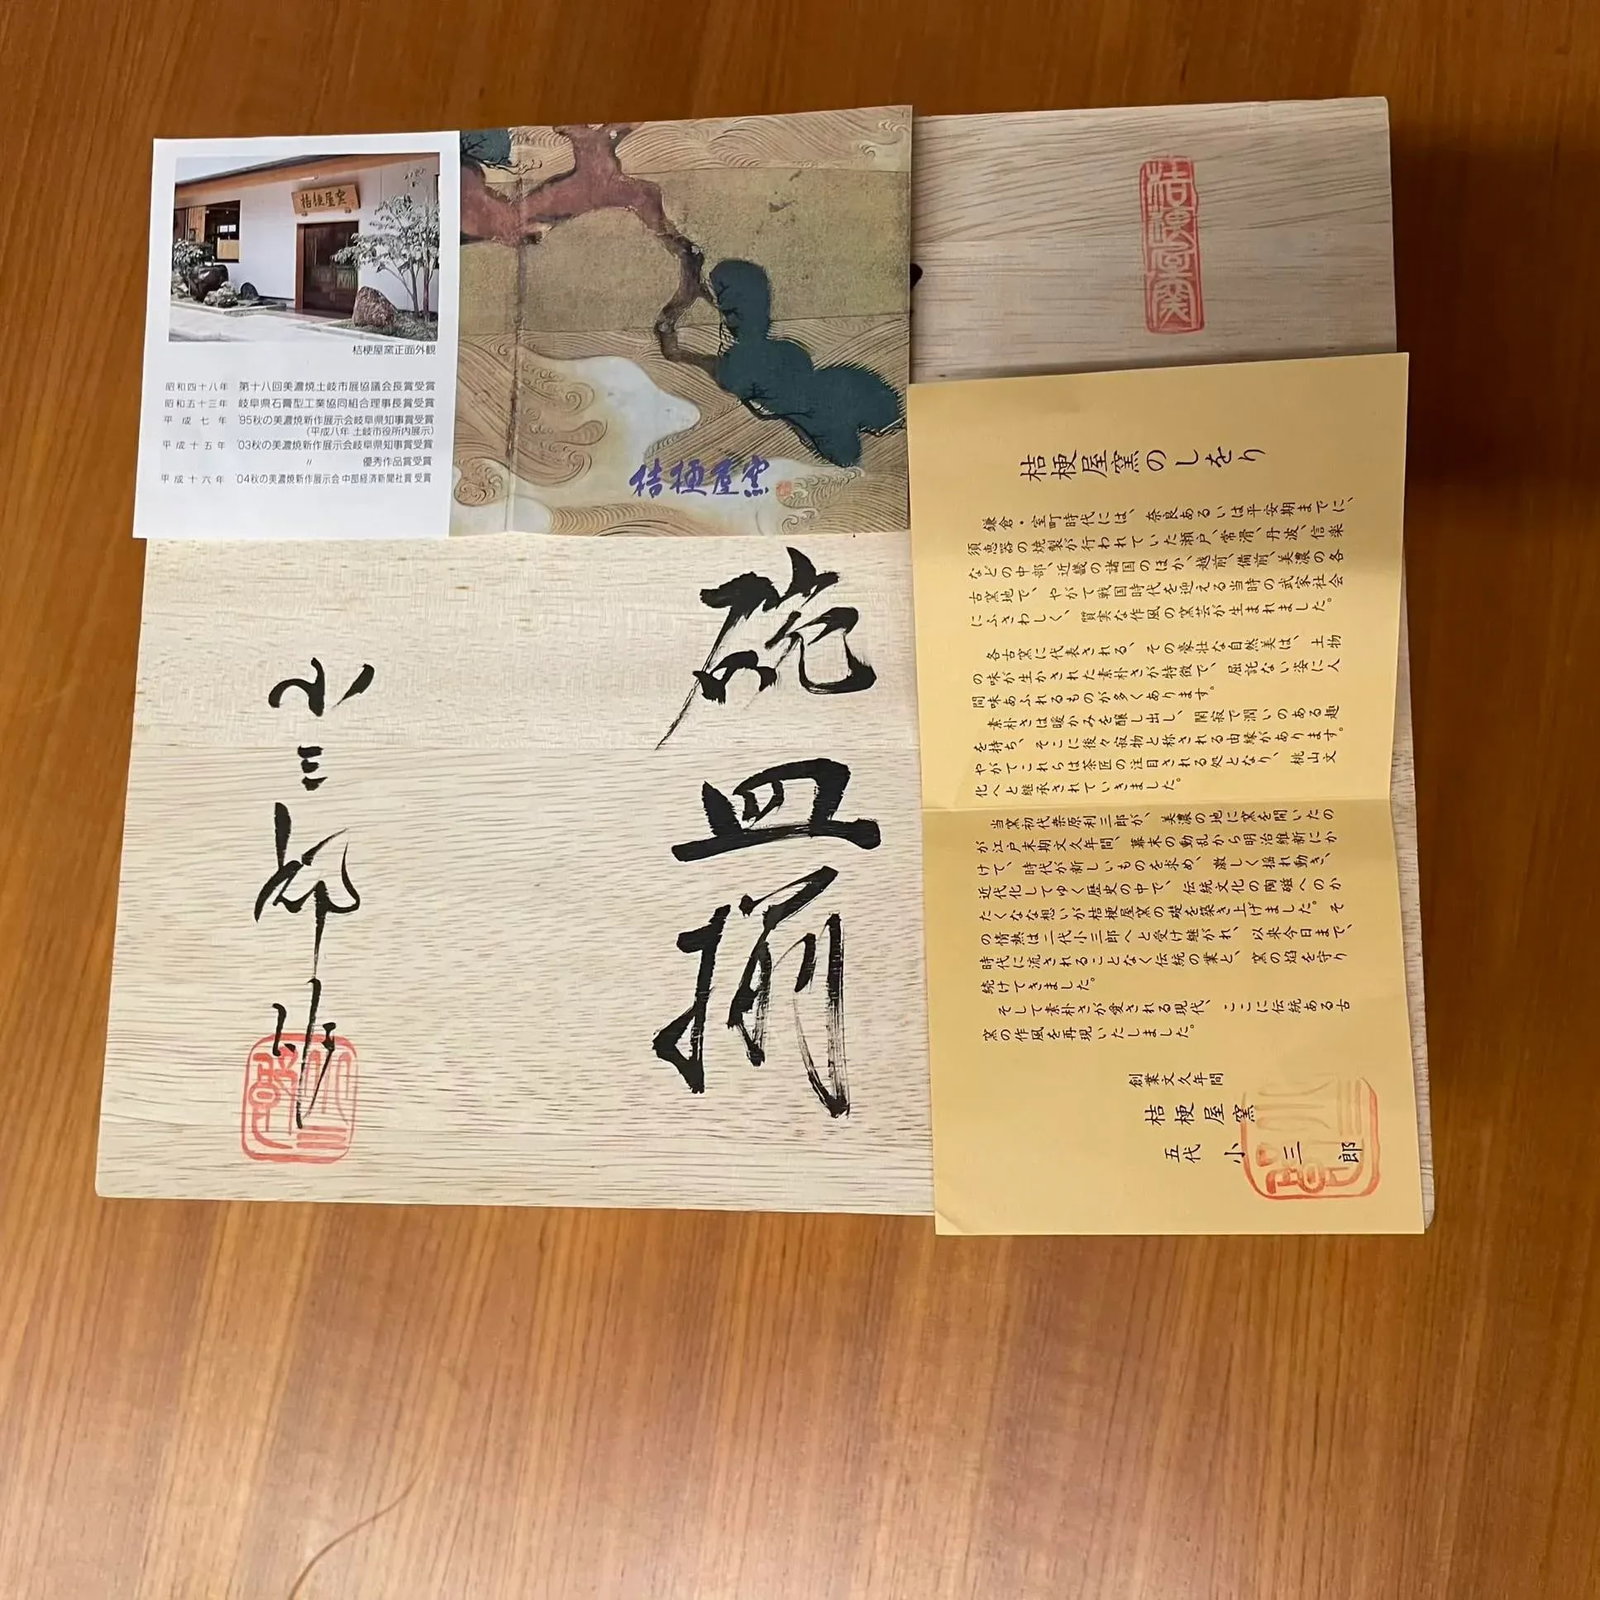 桔梗屋窯
桔梗屋窯正面外観
昭和四十八年 第十八回美濃焼土岐市展協議会長賞受賞
昭和五十三年 岐阜県石膏型工業協同組合理事長賞受賞
平成七年 '95秋の美濃焼新作展示会岐阜県知事賞受賞
(平成八年 土岐市役所内展示)
平成十五年 '03秋の美濃焼新作展示会岐阜県知事賞受賞
〃 優秀作品賞受賞
平成十六年 '04秋の美濃焼新作展示会 中部経済新聞社賞受賞
桔梗屋窯
桔梗屋窯
碗皿揃
小三郎作
桔梗屋窯のしをり
鎌倉・室町時代には、奈良あるいは平安期までに、
須恵器の焼製が行われていた瀬戸、常滑、丹波、信楽
などの中部、近畿の諸国のほか、越前、備前、美濃の各
古窯地で、やがて戦国時代を迎える当時の武家社会
にふさわしく、質実な作風の窯芸が生まれました。
各古窯に代表される、その豪壮な自然美は、土物
の味が生かされた素朴さが特徴で、屈託ない姿に人
間味あふれるものが多くあります。
素朴さは暖かみを醸し出し、閑寂で潤いのある趣
を持ち、そこに後々寂物と称される由縁があります。
やがてこれらは茶匠の注目される処となり、桃山文
化へと継承されていきました。
当窯初代桒原利三郎が、美濃の地に窯を開いたの
が江戸末期文久年間、幕末の動乱から明治維新にか
けて、時代が新しいものを求め、激しく揺れ動き、
近代化してゆく歴史の中で、伝統文化の陶磁へのか
たくなな想いが桔梗屋窯の礎を築き上げました。そ
の情熱は二代小三郎へと受け継がれ、以来今日まで、
時代に流されることなく伝統の業と、窯の焰を守り
続けてきました。
そして素朴さが愛される現代、ここに伝統ある古
窯の作風を再現いたしました。
創業文久年間
桔梗屋窯
五代 小三郎